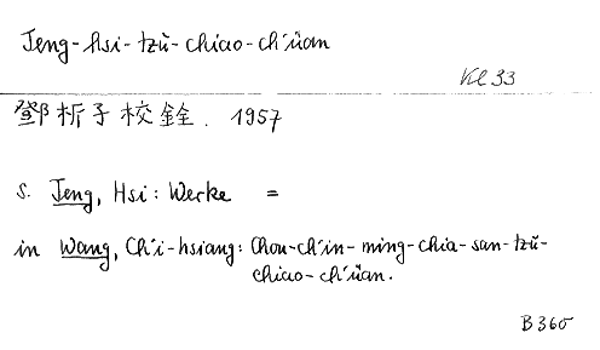 Teng-hsi-tzŭ-chiao-ch'üan
Kl 33
鄧析子校銓. 1957
s. Teng, Hsi: Werke =
in Wang, Ch'i-hsiang: Chou-ch'in-ming-chia-san-tzŭ-
chiao-ch'üan.
B 360